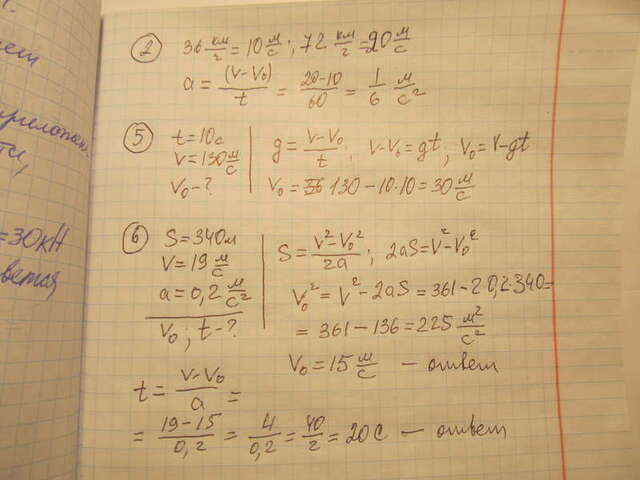 ием
прилопан.
ти,
=30кН
вется
② 36 км/ч = 10 м/с ; 72 км/ч = 20 м/с
a = (V-V₀)/t = (20-10)/60 = 1/6 м/с²
⑤ t = 10с
V = 130 м/с
V₀ - ?
g = (V-V₀)/t ; V-V₀ = gt ; V₀ = V-gt
V₀ = 130 - 10·10 = 30 м/с
⑥ S = 340м
V = 19 м/с
a = 0,2 м/с²
V₀ ; t - ?
S = (V²-V₀²)/2a ; 2aS = V²-V₀²
V₀² = V² - 2aS = 361 - 2·0,2·340 =
= 361 - 136 = 225 м²/с²
V₀ = 15 м/с — ответ
t = (V-V₀)/a =
= (19-15)/0,2 = 4/0,2 = 40/2 = 20 с — ответ